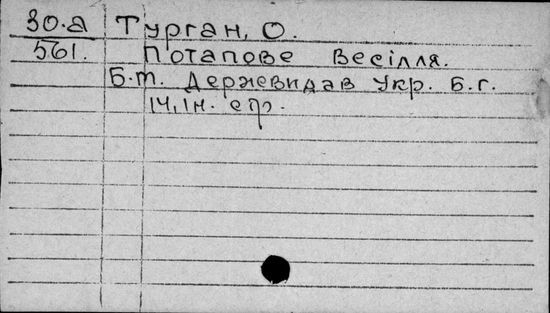 30.a Турган, О.
561. Потапове Весілля.
Б.m. Держвидав Укр. Б.г.
14,1н. стр.